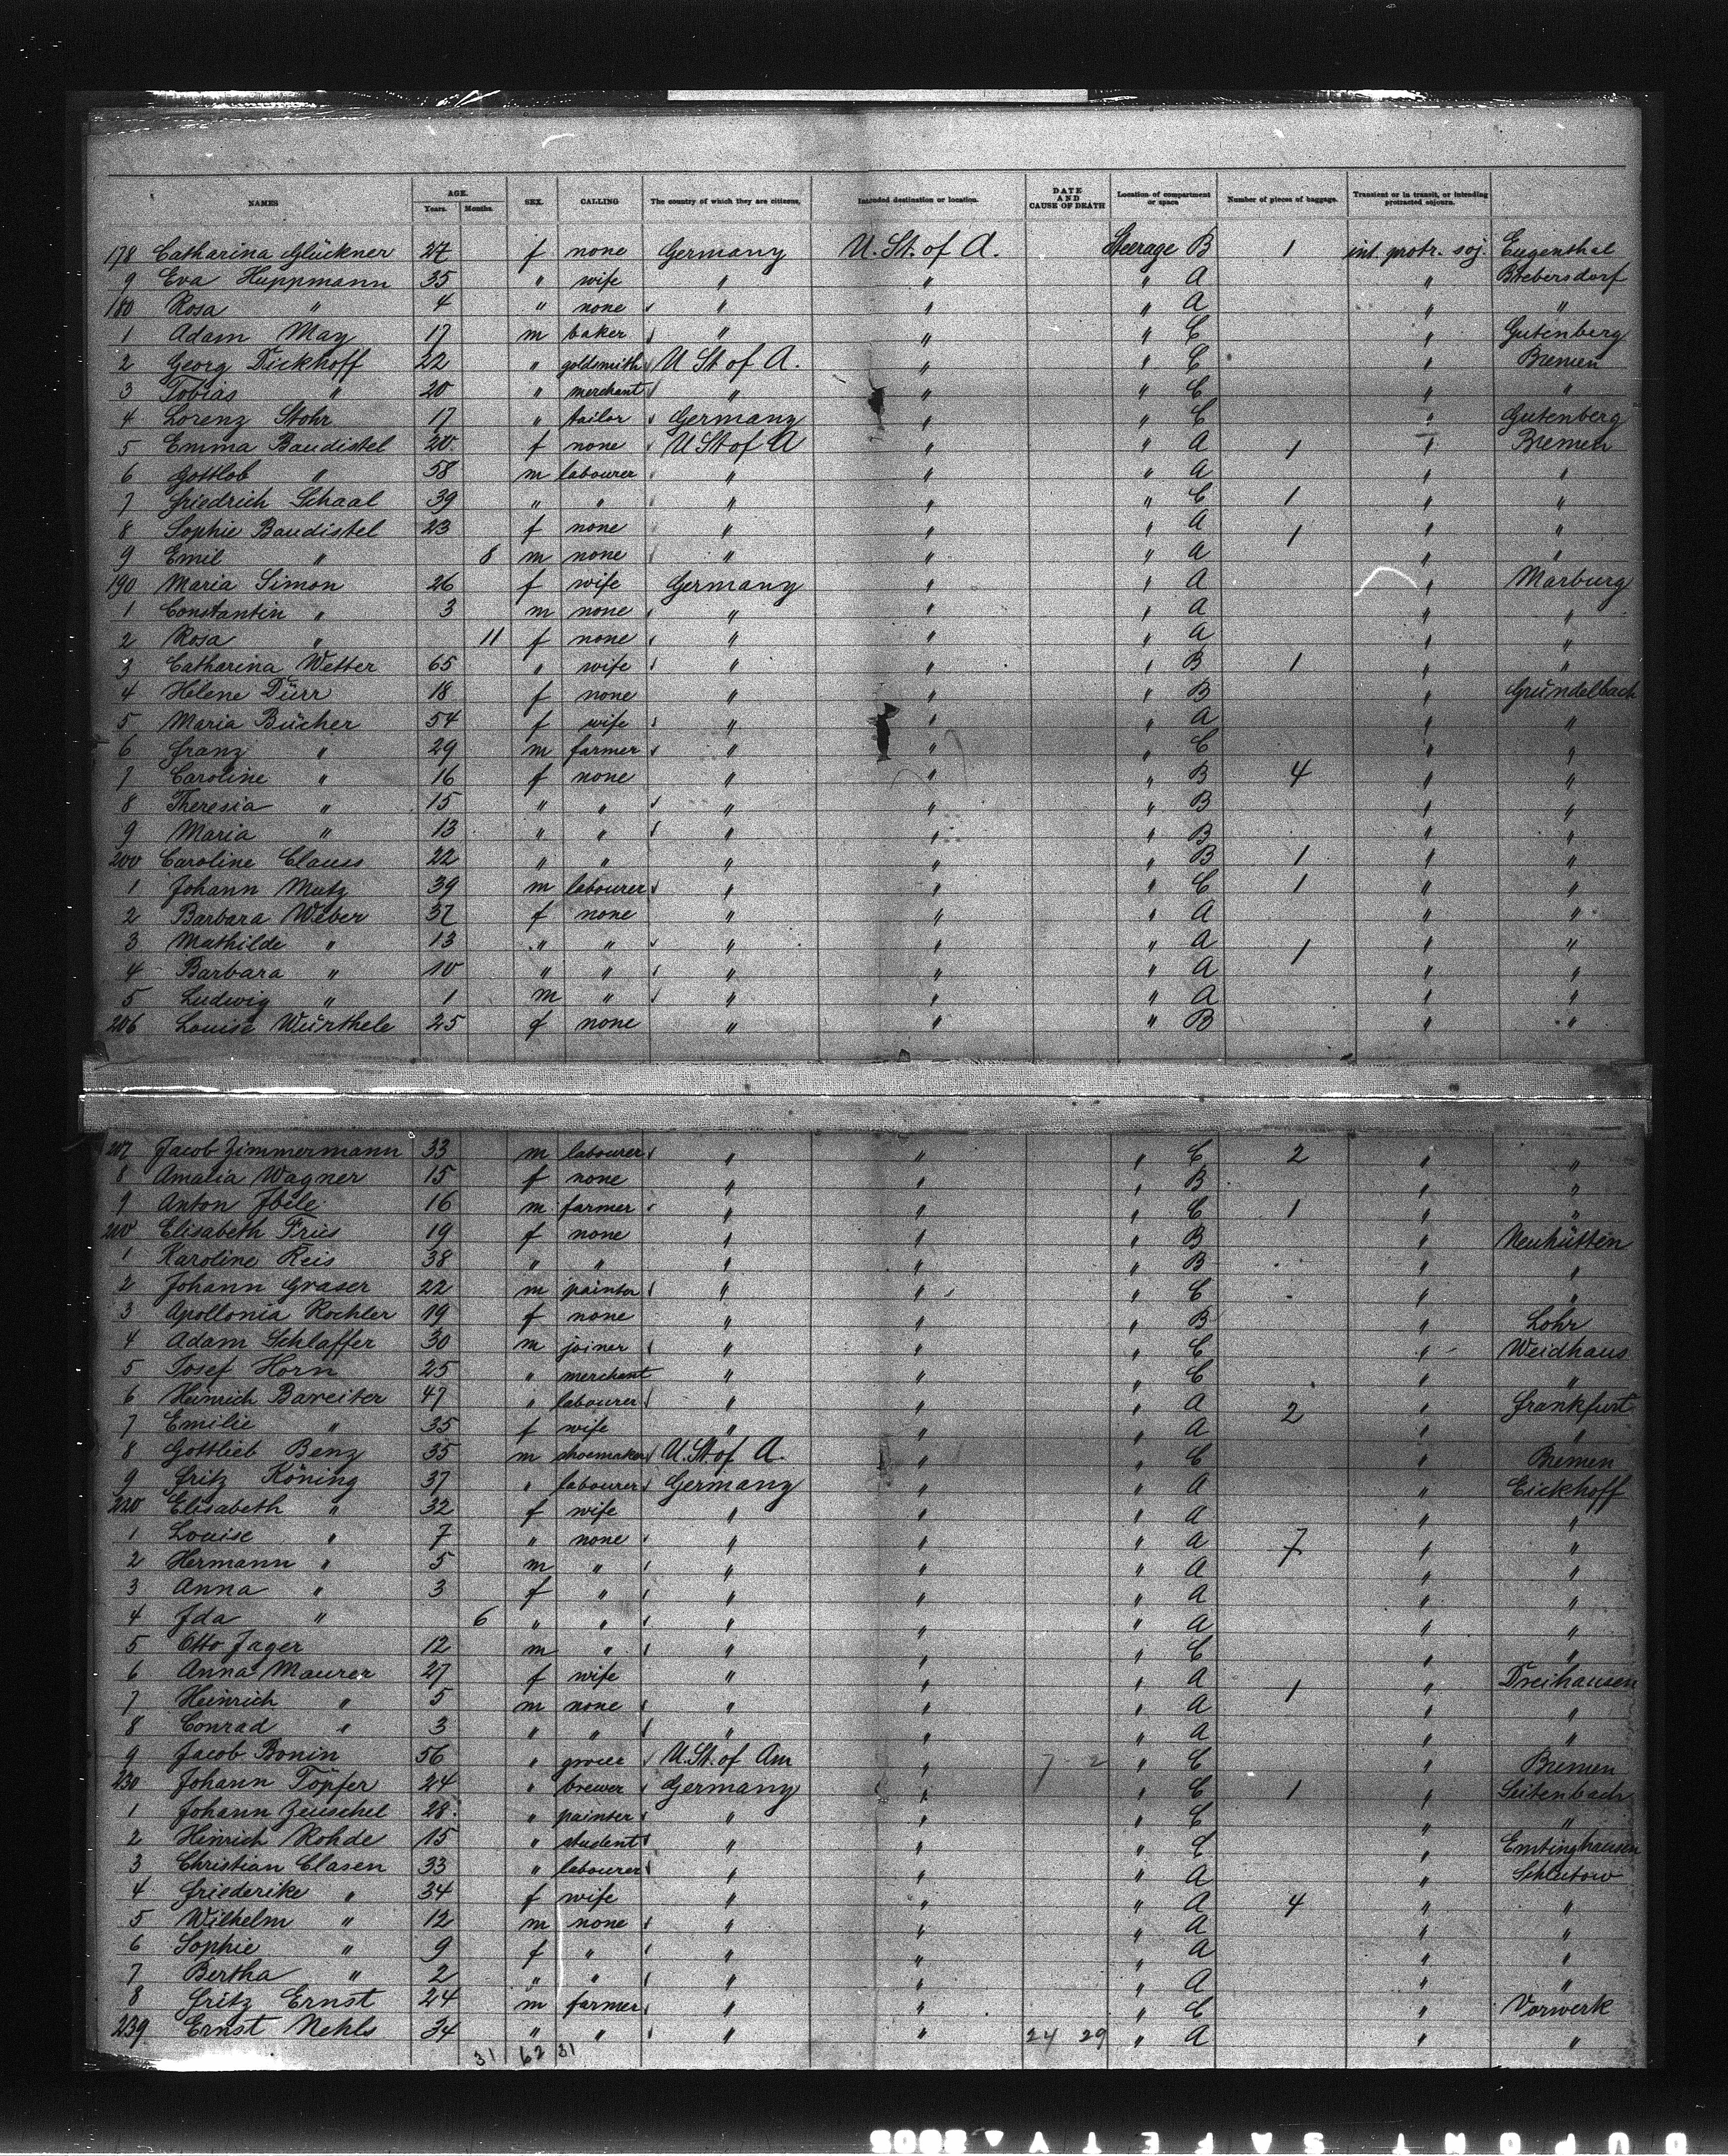 NAMES AGE. Years. Months. SEX. CALLING The country of which they are citizens. Intended destination or location. DATE AND CAUSE OF DEATH Location of compartment or space Number of pieces of baggage. Transient or in transit, or intending protracted sojourn.
178 Catharina Glückner 27 f none Germany U. St. of A. Steerage B 1 int. protr. soj. Eugenthal
9 Eva Huppmann 35 " wife " " " A " Brebersdorf
180 Rosa " 4 " none " " " A " "
1 Adam May 17 m baker " " " C " Gutenberg
2 Georg Dickhoff 22 " goldsmith U St of A. " " C " Bremen
3 Tobias " 20 " merchant " " " C " "
4 Lorenz Stohr 17 " tailor Germany " " C " Gutenberg
5 Emma Baudistel 20 f none U St of A " " A 1 " Bremen
6 Gottlob " 58 m labourer " " " A " "
7 Friedrich Schaal 39 " " " " " C 1 " "
8 Sophie Baudistel 23 f none " " " A 1 " "
9 Emil " 8 m none " " " A " "
190 Maria Simon 26 f wife Germany " " A " Marburg
1 Constantin " 3 m none " " " A " "
2 Rosa " 11 f none " " " A " "
3 Catharina Wetter 65 " wife " " " B 1 " "
4 Helene Dürr 18 f none " " " B " Gründelbach
5 Maria Bücher 54 f wife " " " A " "
6 Franz " 29 m farmer " " " C " "
7 Caroline " 16 f none " " " B 4 " "
8 Theresia " 15 " " " " " B " "
9 Maria " 13 " " " " " B " "
200 Caroline Clauss 22 " " " " " B 1 " "
1 Johann Mutz 39 m labourer " " " C 1 " "
2 Barbara Weber 37 f none " " " A " "
3 Mathilde " 13 " " " " " A 1 " "
4 Barbara " 10 " " " " " A " "
5 Ludwig " 1 m " " " " A " "
206 Louise Würthele 25 f none " " " B " "
207 Jacob Zimmermann 33 m labourer " " " C 2 " "
8 Amalia Wagner 15 f none " " " B " "
9 Anton Ibele 16 m farmer " " " C 1 " "
210 Elisabeth Fries 19 f none " " " B " Neuhütten
1 Karoline Reis 38 " " " " " B " "
2 Johann Graser 22 m painter " " " C " "
3 Apollonia Rochler 19 f none " " " B " Lohr
4 Adam Schlaffer 30 m joiner " " " C " Weidhaus
5 Josef Horn 25 " merchant " " " C " "
6 Heinrich Bareiter 47 " labourer " " " A 2 " Frankfurt
7 Emilie " 35 f wife " " " A " "
8 Gottlieb Benz 35 m shoemaker U. St. of A. " " C " Bremen
9 Fritz Köning 37 " labourer Germany " " A " Eickhoff
220 Elisabeth " 32 f wife " " " A " "
1 Louise " 7 " none " " " A 7 " "
2 Hermann " 5 m " " " " A " "
3 Anna " 3 f " " " " A " "
4 Ida " 6 " " " " " A " "
5 Otto Jager 12 m " " " " C " "
6 Anna Maurer 27 f wife " " " A 1 " Dreihausen
7 Heinrich " 5 m none " " " A " "
8 Conrad " 3 " " " " " A " "
9 Jacob Bonin 56 " U. St. of Am " 7 2 " C " Bremen
230 Johann Töpfer 24 " brewer Germany " " C 1 " Seitenbach
1 Johann Zeuschel 28 " painter " " " C " "
2 Heinrich Rohde 15 " student " " " C " Emtinghausen
3 Christian Clasen 33 " labourer " " " A " Schlutow
4 Friederike " 34 f wife " " " A 4 " "
5 Wilhelm " 12 m none " " " A " "
6 Sophie " 9 f " " " " A " "
7 Bertha " 2 " " " " " A " "
8 Fritz Ernst 24 m farmer " " " C " Vorwerk
239 Ernst Nehls 34 " " " " 24 29 " A " "
31 62 31
DUPONT SAFETY